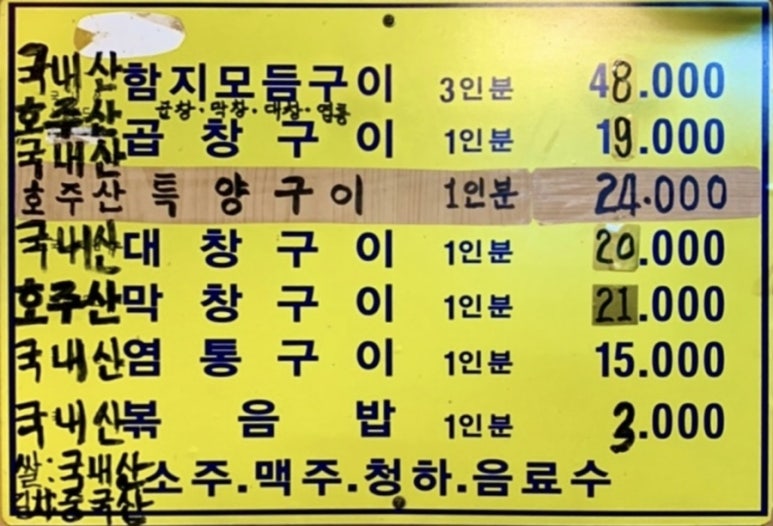 국내산 함지모듬구이 3인분 48.000
호주산 곱창·막창·대창·염통
국내산 곱창구이 1인분 19.000
호주산 특양구이 1인분 24.000
국내산 대창구이 1인분 20.000
호주산 막창구이 1인분 21.000
국내산 염통구이 1인분 15.000
국내산 볶음밥 1인분 3.000
쌀:국내산 소주.맥주.청하.음료수
김치:중국산